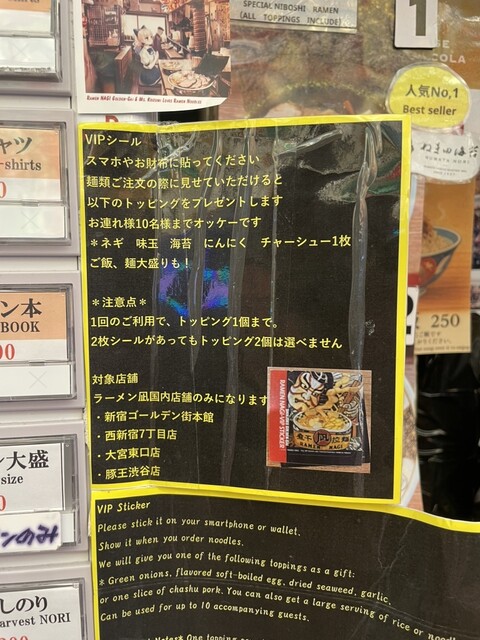 SPECIAL NIBOSHI RAMEN
(ALL TOPPINGS INCLUDE)
1
人気No,1
Best seller
RAMEN NAGI GOLDEN-GAI & MS. KOZUMI LOVES RAMEN NOODLES
ャツ
-shirts
VIPシール
スマホやお財布に貼ってください
麺類ご注文の際に見せていただけると
以下のトッピングをプレゼントします
お連れ様10名様までオッケーです
＊ネギ 味玉 海苔 にんにく チャーシュー1枚
ご飯、麺大盛りも！
＊注意点＊
1回のご利用で、トッピング1個まで。
2枚シールがあってもトッピング2個は選べません
対象店舗
ラーメン凪国内店舗のみになります
・新宿ゴールデン街本館
・西新宿7丁目店
・大宮東口店
・豚王渋谷店
RAMEN NAGI VIP STICKER
凪
RAMEN NAGI
250
ン本
BOOK
00
ン大盛
size
ンのみ
しのり
arvest NORI
VIP Sticker
Please stick it on your smartphone or wallet.
Show it when you order noodles.
We will give you one of the following toppings as a gift:
* Green onions, flavored soft-boiled egg, dried seaweed, garlic,
or one slice of chashu pork. You can also get a large serving of rice or
Can be used for up to 10 accompanying guests.
One topping